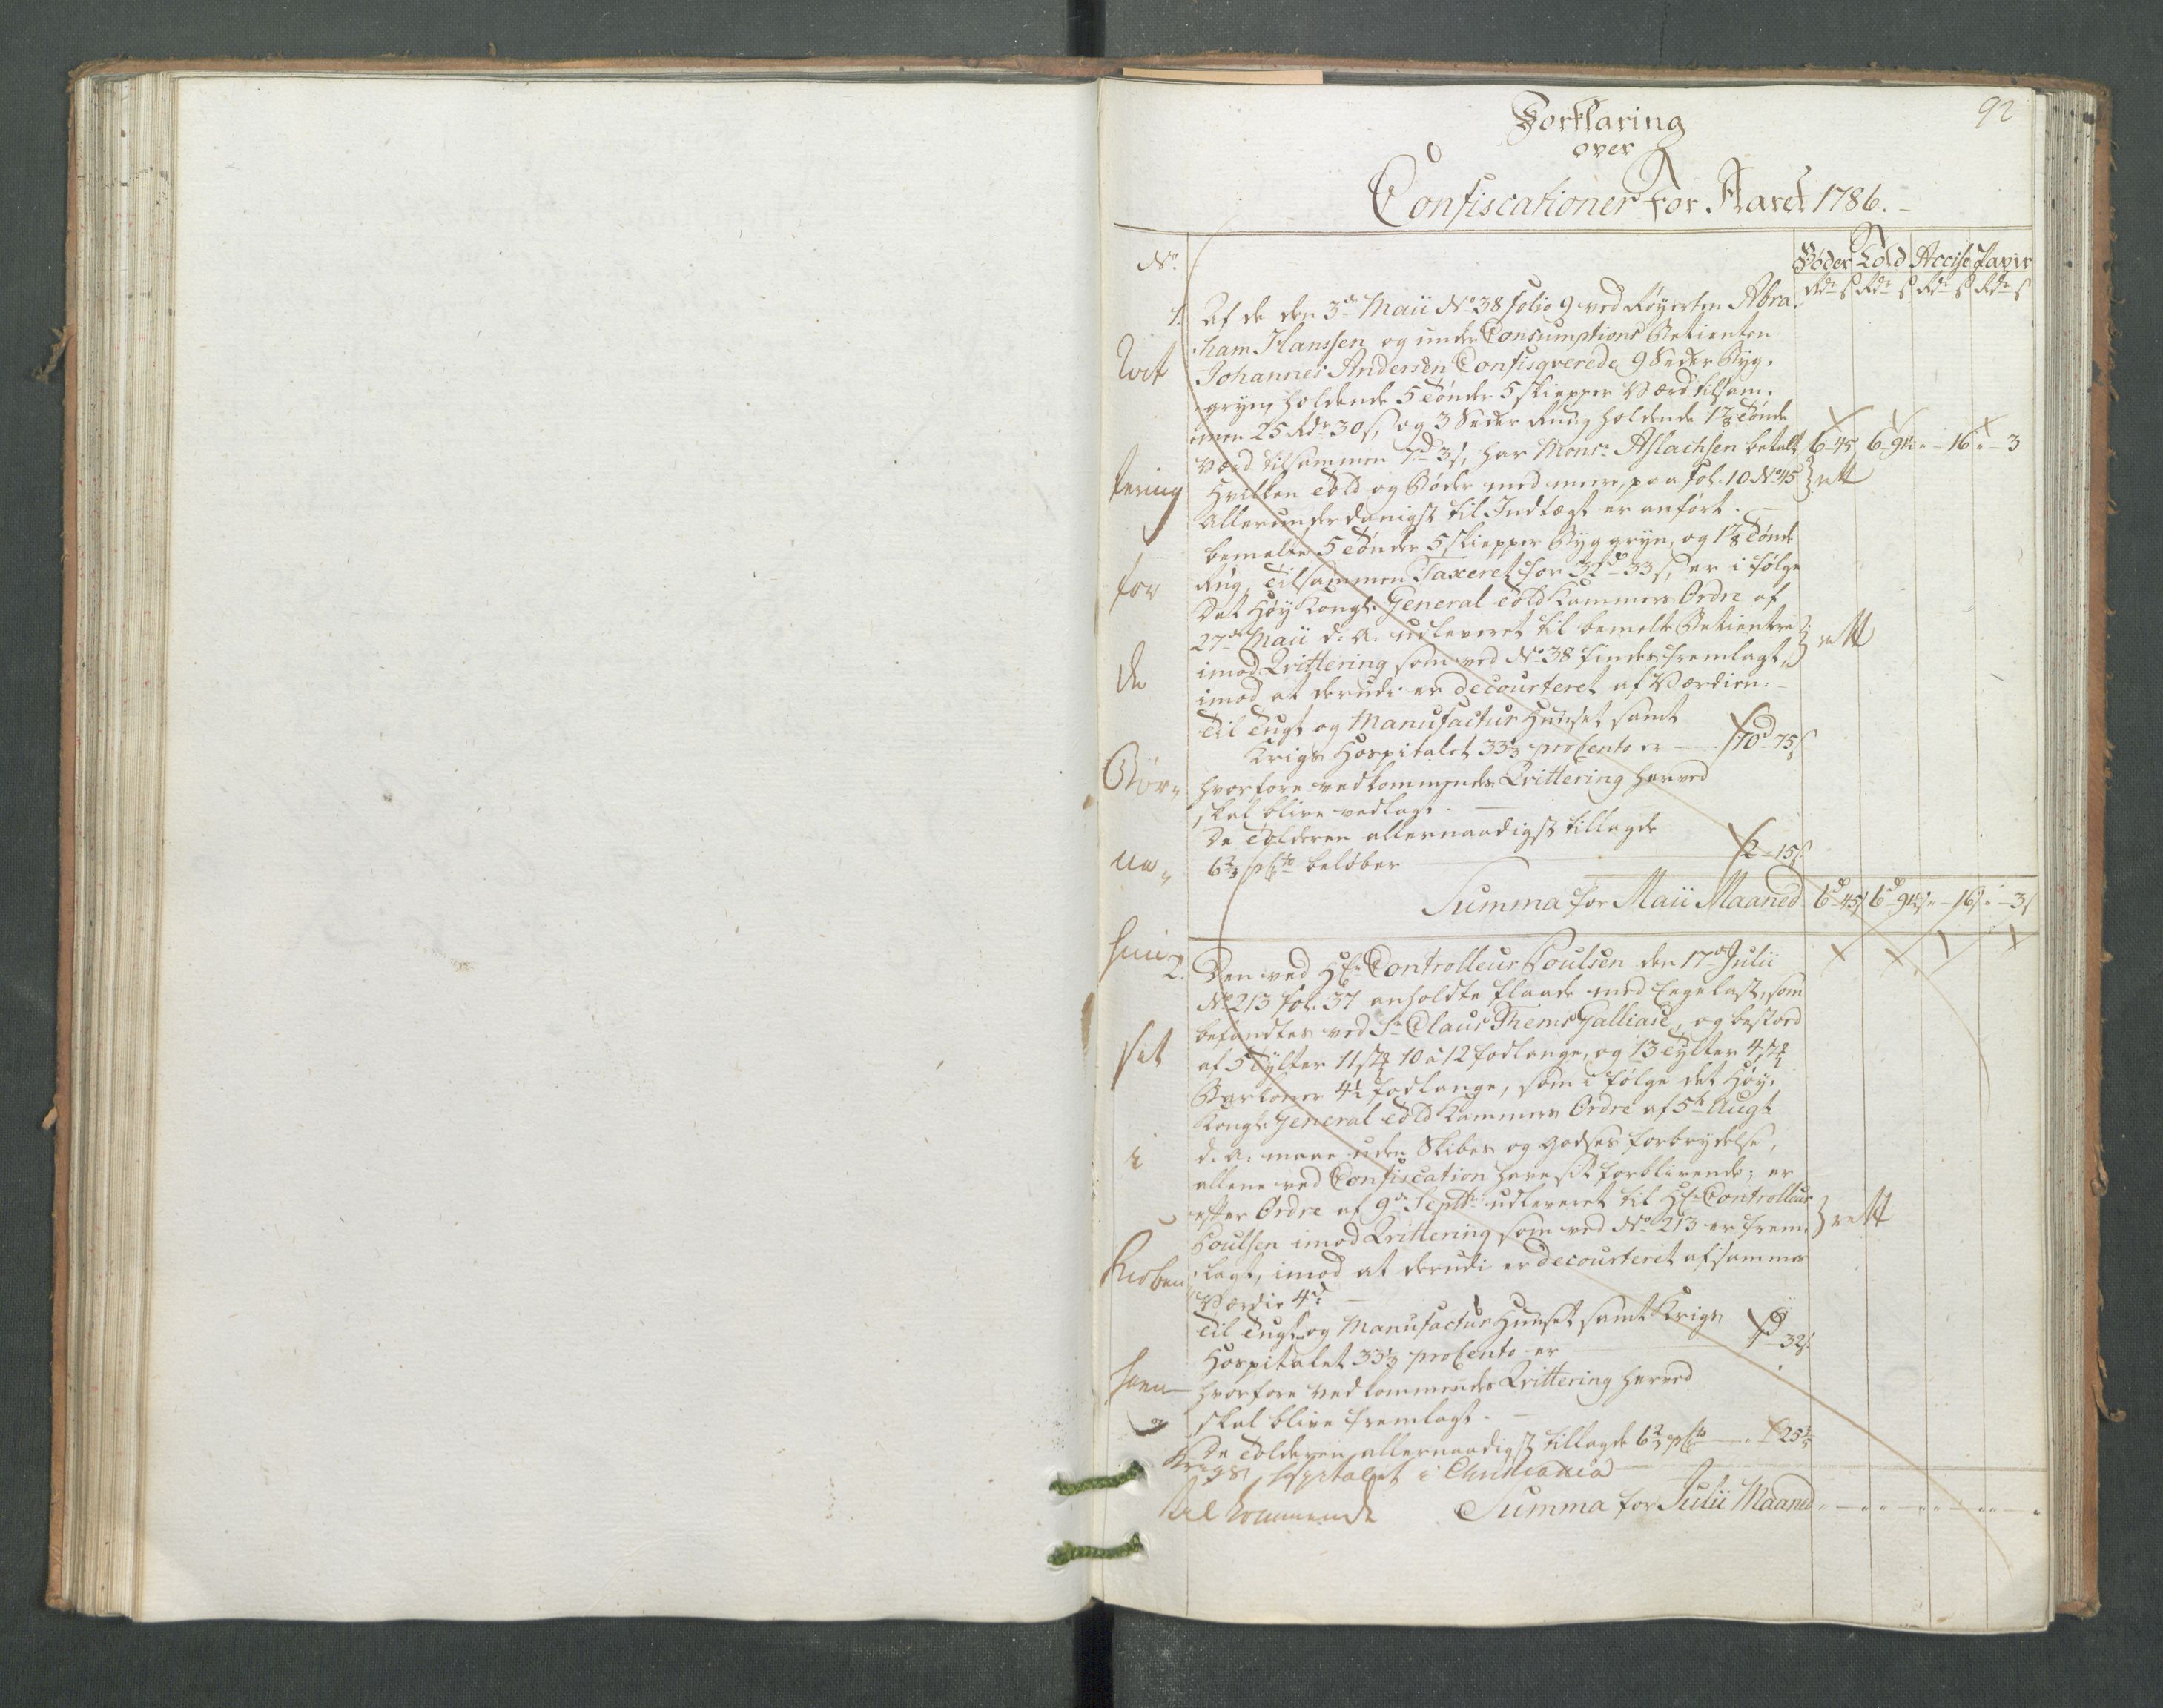 92
Forklaring
over
Confiscationer for Aaret 1786.
No.
Bøder Told Accise Papir
Rdr s Rdr s Rdr s Rdr s
1. Af de den 3de Maii No 38 folio 9 ved Røyerten Abra-
ham Hanssen og under Consumptions Betienten
Johannes Andersen Confisqverede 9 Sæker Byg-
gryn, holdende 5 Tønder 5 Skiepper Værd tilsam-
men 25 Rdr 30 s, og 3 Sæker Rug holdende 1 7/8 Tønde
Værd tilsammen 7d 3s, har Monsr Aslachsen betalt 6-45 6-94 "-16 "-3
Hvilken Told og Bøder med meere, paa fol. 10 No 45 } rett
Allerunderdanigst til Indtægt er anført.
bemelte 5 Tønder 5 Skiepper Byggryn, og 1 7/8 Tønde
Rug, tilsammen Taxeret for 32d 33s, er i følge
Det Høy Kongl. General Told Kammers Ordre af
27de Maii d. A. udleveret til bemelte Betientere } rett
imod Qvittering som ved No 38 findes fremlagt,
imod at derudi er decourteret af Værdien.
Til Tugt og Manufactur Huuset samt
Krigs Hospitalet 33 1/3 proCento er - 10d-75s
hvorfore vedkommendes Qvittering herved
skal blive vedlagt.
De Tolderen allernaadigst tillagde
6 2/3 pCto beløber 2-15s
Summa for Maii Maaned 6d-45s 6d-94s "-16s "-3s
2. Den ved Hr Controlleur Poulsen den 17de Julii
No 213 fol. 37 anholdte flaade med Ege last, som
befandtes ved Sr Claus Thems Galliase, og bestod
af 5 Tylter 11 st 10 a 12 fodlange, og 13 Tylter 4 st
4 1/2 fodlange, som i følge det Høy-
Kongl General Told Kammers Ordre af 5te Augt
d. A. maae uden Skibes og godses forbrydelse,
allene ved Confiscation have sit forblivende; er
efter Ordre af 9de Septbr udleveret til Hr Controlleur } rett
Poulsen imod Qvittering som ved No 213 er frem-
lagt, imod at derudi er decourteret af sammes
Værdie 4d
Til Tugt og Manufactur Huuset samt Krigs
Hospitalet 33 1/3 proCento er 1d-32s
hvorfore vedkommendes Qvittering herved
skal blive fremlagt.
De Tolderen allernaadigst tillagde 6 2/3 pCto - 25 3/5
Summa for Julii Maaned
Qvit
tering
for
de
Bør-
ne-
huu
set
i
Kioben
havn
og
Krigs Hospitalet i Christiania
vil kommende